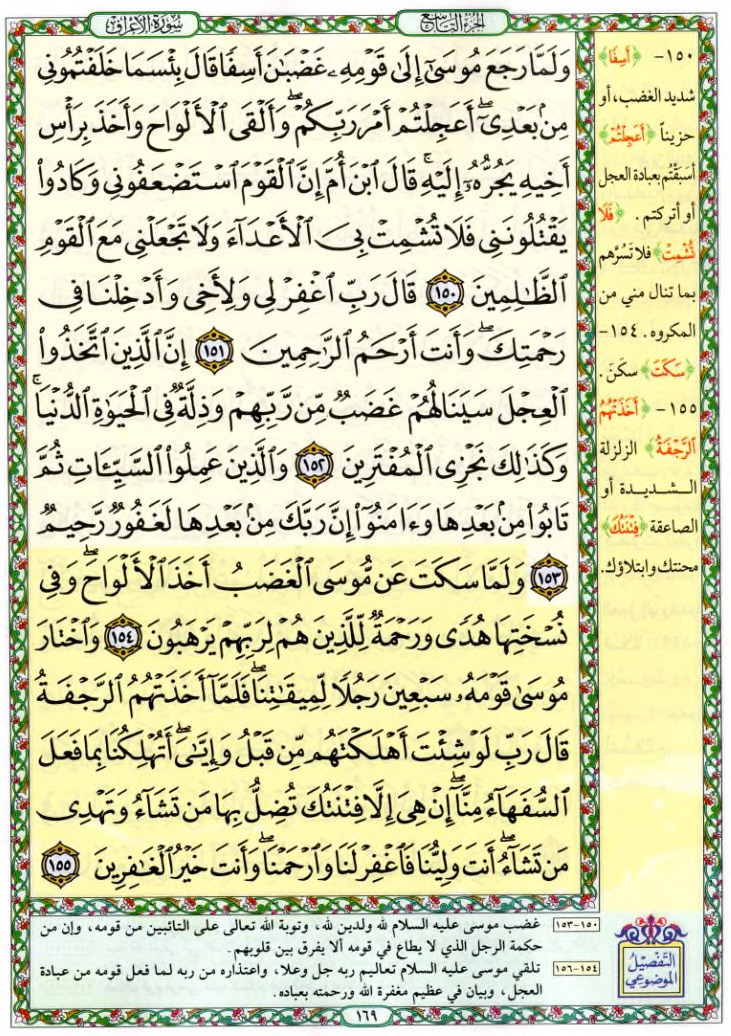 الجزء التاسع
سورة الأعراف
وَلَمَّا رَجَعَ مُوسَىٰٓ إِلَىٰ قَوْمِهِۦ غَضْبَٰنَ أَسِفًا قَالَ بِئْسَمَا خَلَفْتُمُونِى
مِنۢ بَعْدِىٓ ۖ أَعَجِلْتُمْ أَمْرَ رَبِّكُمْ ۖ وَأَلْقَى ٱلْأَلْوَاحَ وَأَخَذَ بِرَأْسِ
أَخِيهِ يَجُرُّهُۥٓ إِلَيْهِ ۚ قَالَ ٱبْنَ أُمَّ إِنَّ ٱلْقَوْمَ ٱسْتَضْعَفُونِى وَكَادُوا۟
يَقْتُلُونَنِى فَلَا تُشْمِتْ بِىَ ٱلْأَعْدَآءَ وَلَا تَجْعَلْنِى مَعَ ٱلْقَوْمِ
ٱلظَّٰلِمِينَ ١٥٠ قَالَ رَبِّ ٱغْفِرْ لِى وَلِأَخِى وَأَدْخِلْنَا فِى
رَحْمَتِكَ ۖ وَأَنتَ أَرْحَمُ ٱلرَّٰحِمِينَ ١٥١ إِنَّ ٱلَّذِينَ ٱتَّخَذُوا۟
ٱلْعِجْلَ سَيَنَالُهُمْ غَضَبٌ مِّن رَّبِّهِمْ وَذِلَّةٌ فِى ٱلْحَيَوٰةِ ٱلدُّنْيَا ۚ
وَكَذَٰلِكَ نَجْزِى ٱلْمُفْتَرِينَ ١٥٢ وَٱلَّذِينَ عَمِلُوا۟ ٱلسَّيِّـَٔاتِ ثُمَّ
تَابُوا۟ مِنۢ بَعْدِهَا وَءَامَنُوٓا۟ إِنَّ رَبَّكَ مِنۢ بَعْدِهَا لَغَفُورٌ رَّحِيمٌ
١٥٣ وَلَمَّا سَكَتَ عَن مُّوسَى ٱلْغَضَبُ أَخَذَ ٱلْأَلْوَاحَ ۖ وَفِى
نُسْخَتِهَا هُدًى وَرَحْمَةٌ لِّلَّذِينَ هُمْ لِرَبِّهِمْ يَرْهَبُونَ ١٥٤ وَٱخْتَارَ
مُوسَىٰ قَوْمَهُۥ سَبْعِينَ رَجُلًا لِّمِيقَٰتِنَا ۖ فَلَمَّآ أَخَذَتْهُمُ ٱلرَّجْفَةُ
قَالَ رَبِّ لَوْ شِئْتَ أَهْلَكْتَهُم مِّن قَبْلُ وَإِيَّٰىَ ۖ أَتُهْلِكُنَا بِمَا فَعَلَ
ٱلسُّفَهَآءُ مِنَّآ ۖ إِنْ هِىَ إِلَّا فِتْنَتُكَ تُضِلُّ بِهَا مَن تَشَآءُ وَتَهْدِى
مَن تَشَآءُ ۖ أَنتَ وَلِيُّنَا فَٱغْفِرْ لَنَا وَٱرْحَمْنَا ۖ وَأَنتَ خَيْرُ ٱلْغَٰفِرِينَ ١٥٥
١٥٠- ﴿أَسِفًا﴾
شديد الغضب، أو
حزيناً ﴿أَعَجِلْتُمْ﴾
أسَبَقْتُم بعبادة العجل
أو أتركتم. ﴿فَلَا
تُشْمِتْ﴾ فلا تَسُرَّهم
بما تنال مني من
المكروه. ١٥٤-
﴿سَكَتَ﴾ سكَنَ.
١٥٥- ﴿أَخَذَتْهُمُ
ٱلرَّجْفَةُ﴾ الزلزلة
الشديدة أو
الصاعقة ﴿فِتْنَتُكَ﴾
محنتك وابتلاؤك.
التفصيل
الموضوعي
١٥٠-١٥٣ غضب موسى عليه السلام لله ولدين لله، وتوبة الله تعالى على التائبين من قومه، وإن من
حكمة الرجل الذي لا يطاع في قومه ألا يفرق بين قلوبهم.
١٥٤-١٥٦ تلقي موسى عليه السلام تعاليم ربه جل وعلا، واعتذاره من ربه لما فعل قومه من عبادة
العجل، وبيان في عظيم مغفرة الله ورحمته بعباده.
١٦٩